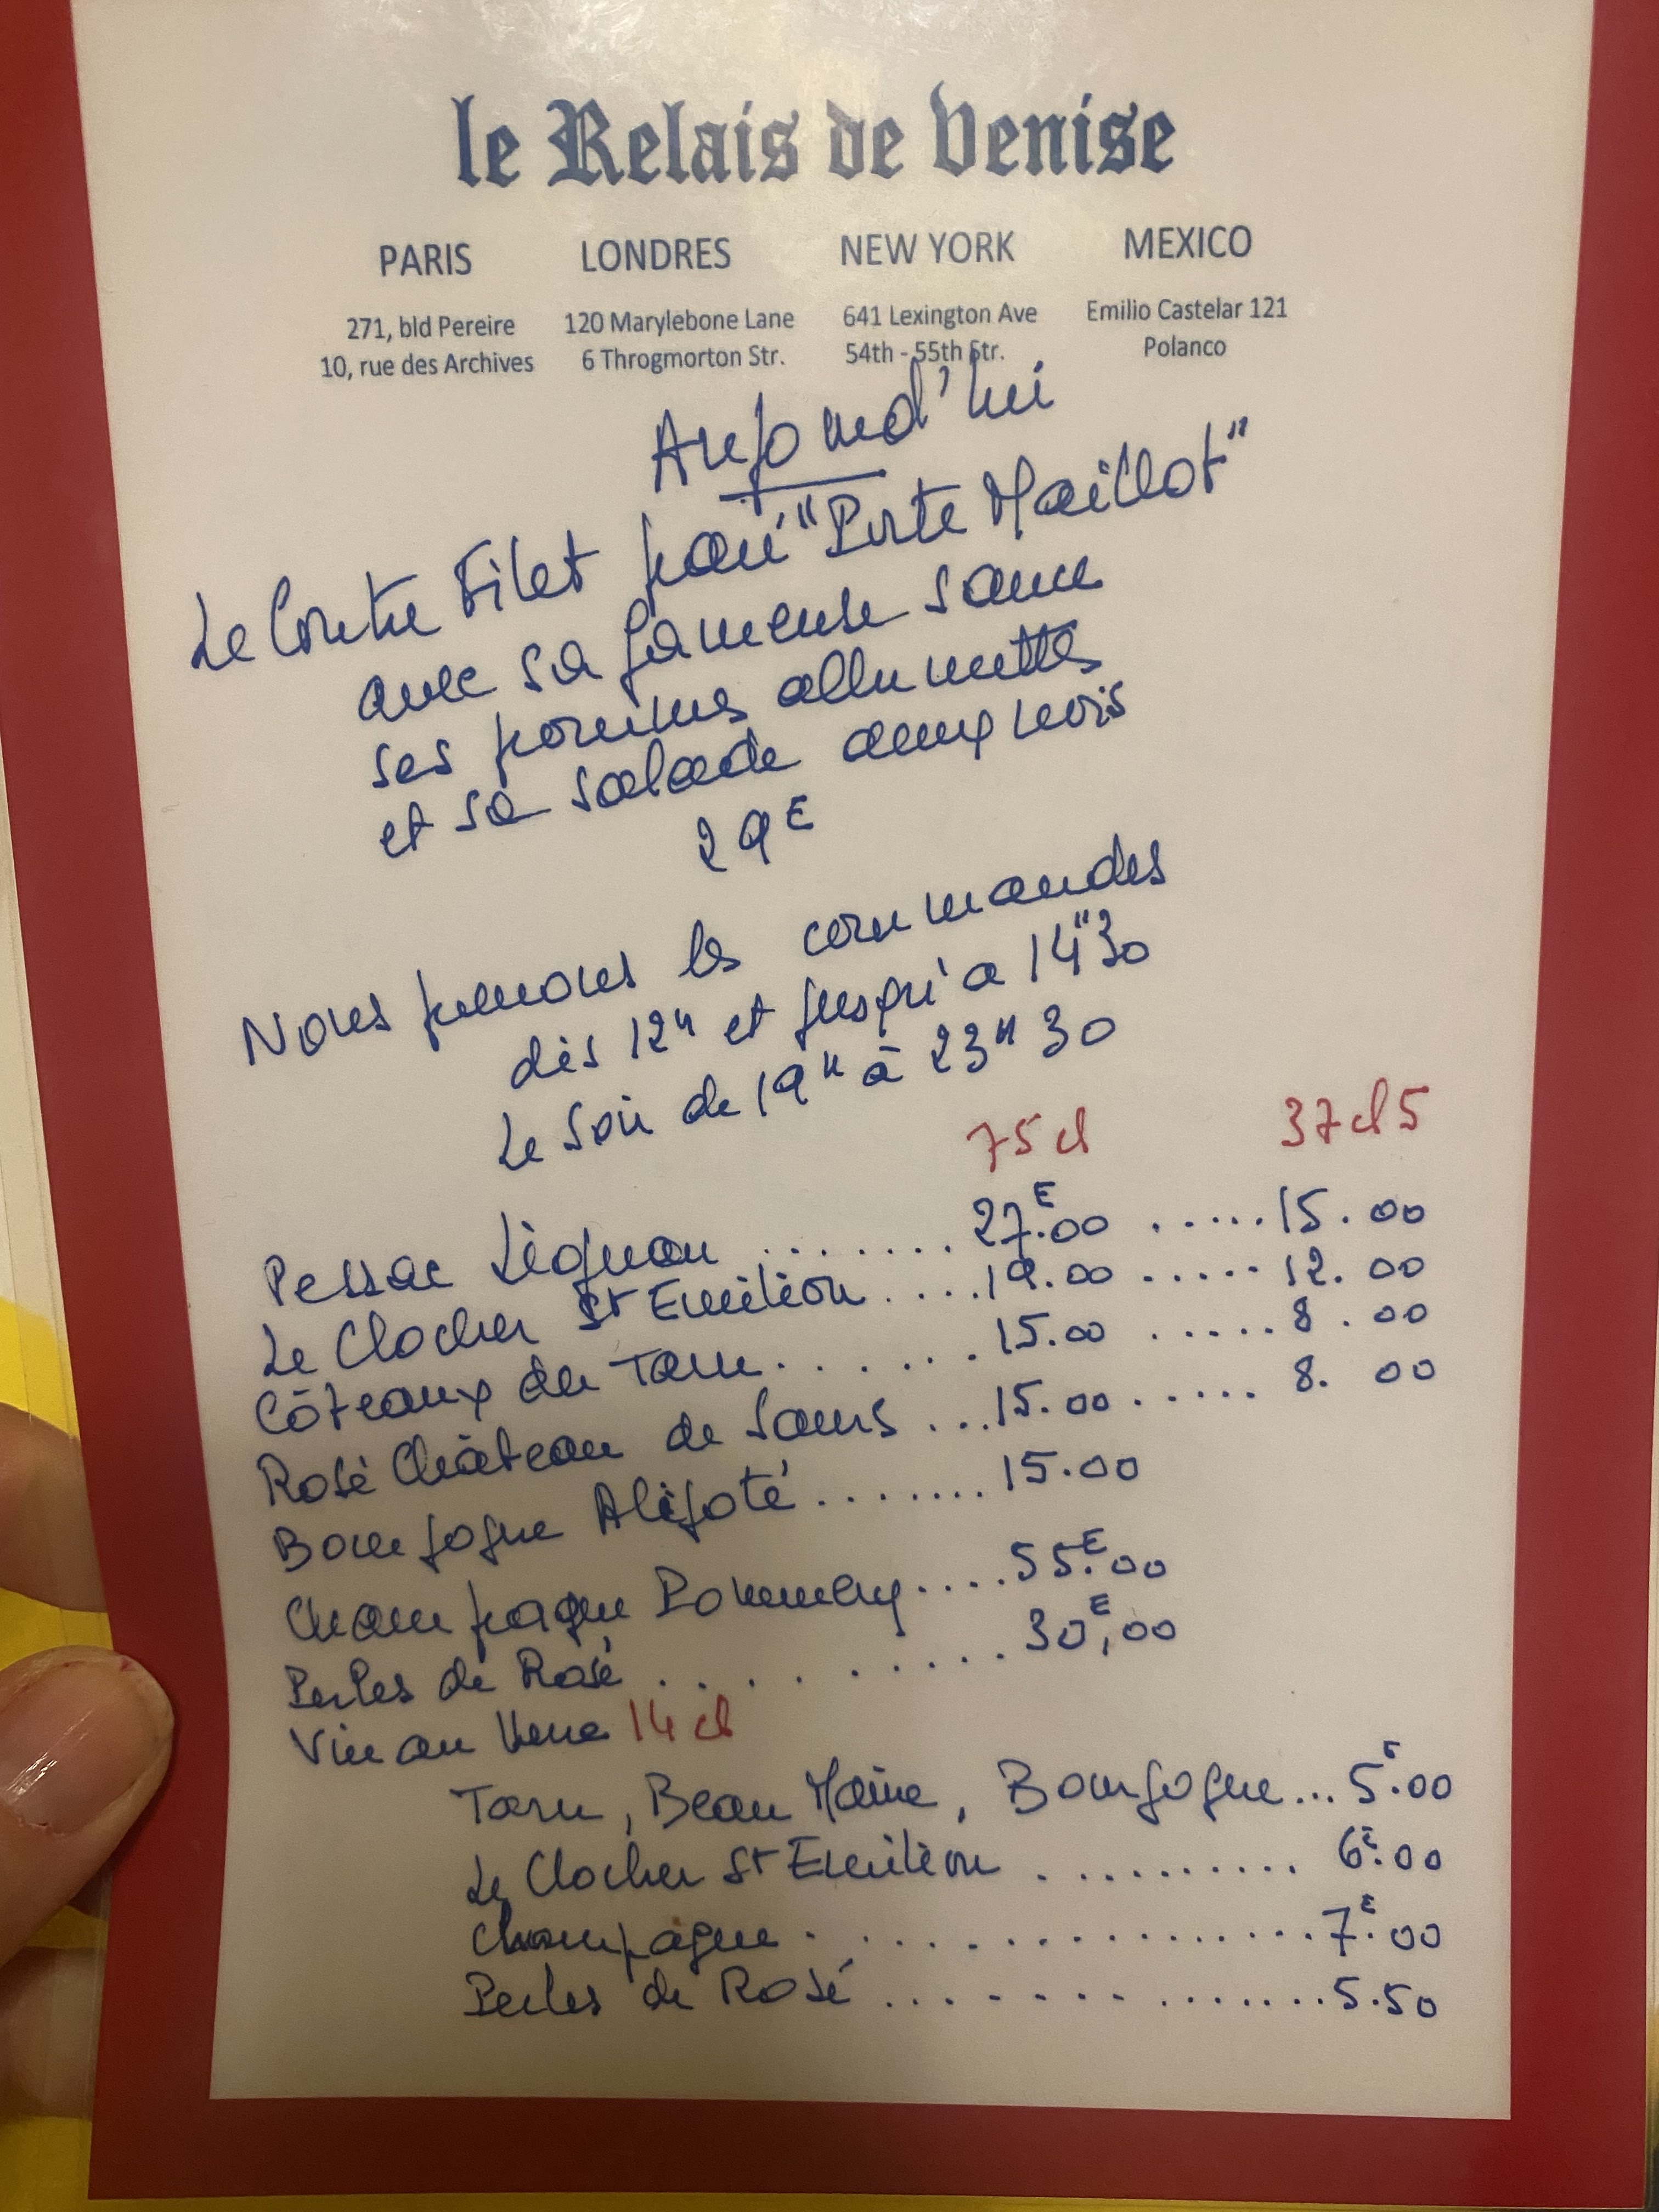 le Relais de Venise
PARIS LONDRES NEW YORK MEXICO
271, bld Pereire 120 Marylebone Lane 641 Lexington Ave Emilio Castelar 121
10, rue des Archives 6 Throgmorton Str. 54th - 55th Str. Polanco
Aujourd'hui
Le Contre Filet paré "Porte Maillot"
avec sa fameuse sauce
ses pommes allumettes
et sa salade aux noix
29E
Nous prenons les commandes
dès 12H et jusqu'à 14H30
Le Soir de 19H à 23H30
75cl 37cl5
Pessac Léognan ........ 27E.00 ..... 15.00
Le Clocher St Emilion .... 19.00 ..... 12.00
Côteaux du Tarn ....... 15.00 ..... 8.00
Rosé Château de Saurs ... 15.00 ..... 8.00
Bourgogne Aligoté ........ 15.00
Champagne Pommery .... 55E.00
Perles de Rosé .......... 30E,00
Vin au Verre 14cl
Tarn, Beau Maine, Bourgogne ... 5E.00
Le Clocher St Emilion .......... 6E.00
Champagne .................. 7E.00
Perles de Rosé ............... 5.50